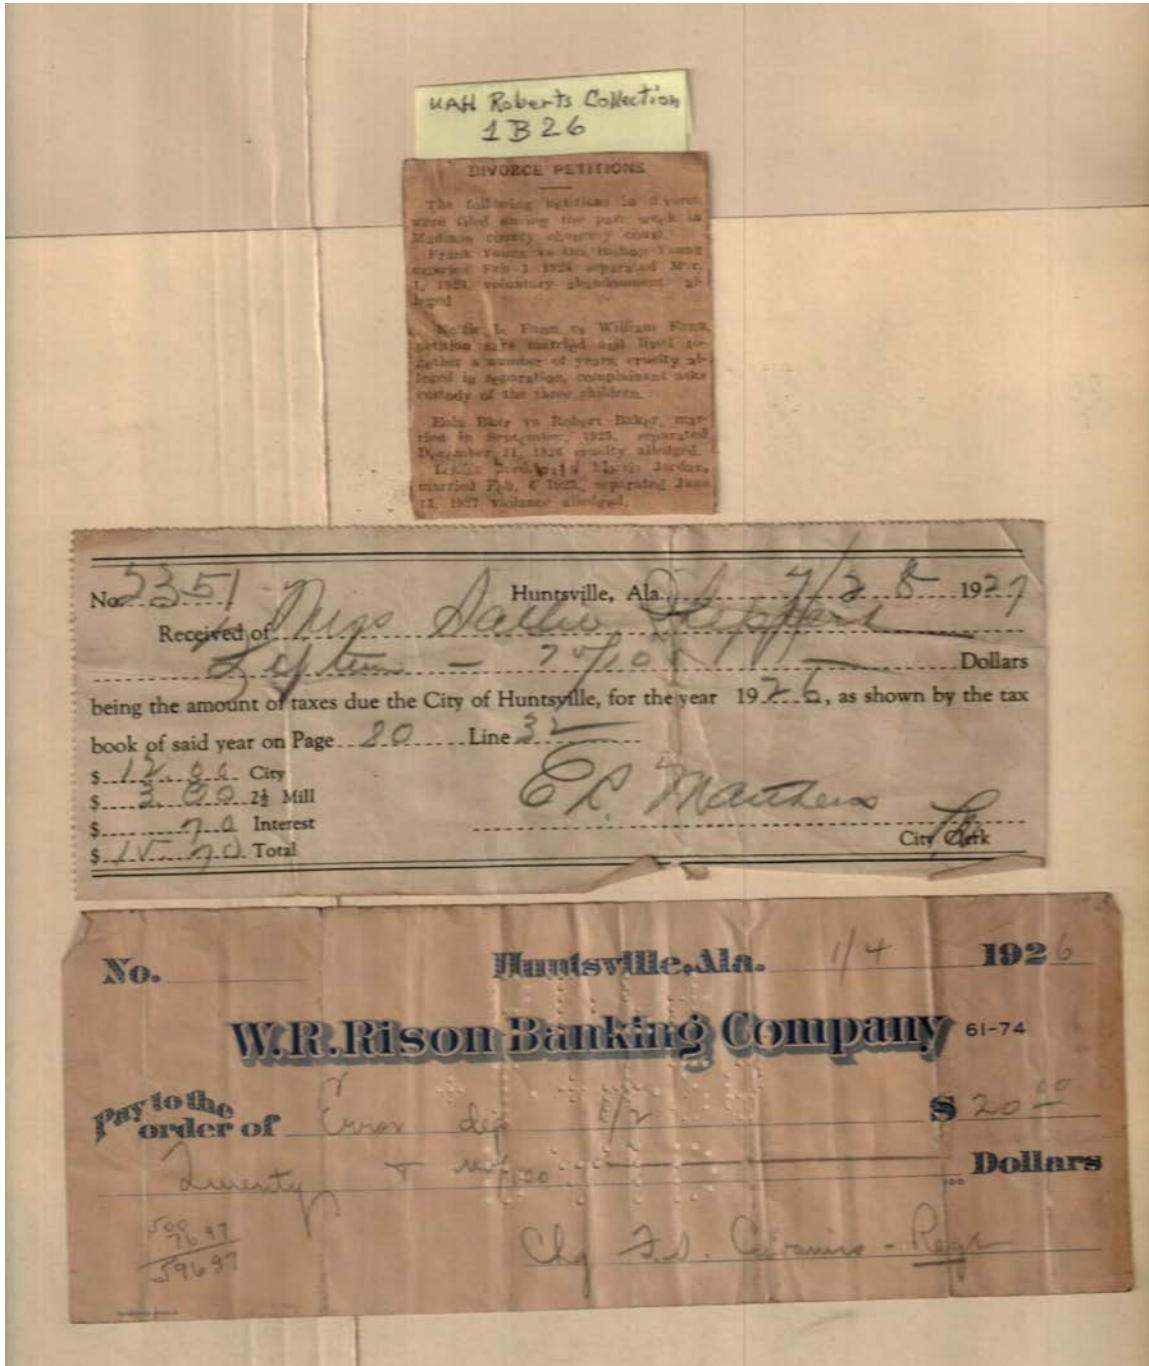 UAH Roberts Collection
1B26
DIVORCE PETITIONS
The following petitions in divorce
were filed during the past week in
Madison county chancery court.
Frank Young vs Ora Young
married Feb 1 1924 separated Mar.
1, voluntary abandonment al-
leged
L. Fann vs William Fann,
petition says married and lived to-
gether a number of years, cruelty al-
leged in separation, complainant asks
custody of the three children.
vs Robert Baker, mar-
ried in September, 1925, separated
December, 11, 1926 cruelty alledged.
Jordan,
married Feb, 4 separated June
13, 1927 violance alledged.
No. 2351 Huntsville, Ala. 7/28 1927
Received of Miss Sallie Sheppard
Fifteen - 70/100 Dollars
being the amount of taxes due the City of Huntsville, for the year 1926, as shown by the tax
book of said year on Page 80 Line 32
$ 12.00 City
$ 3.00 2½ Mill
$ 70 Interest
$ 15.70 Total
City Clerk
No. Huntsville, Ala. 1/4 1926
W. R. Rison Banking Company 61-74
Pay to the
order of Error dep 1/2 $ 20 00
Twenty & no/100 Dollars
500
76 97
596 97
Chg